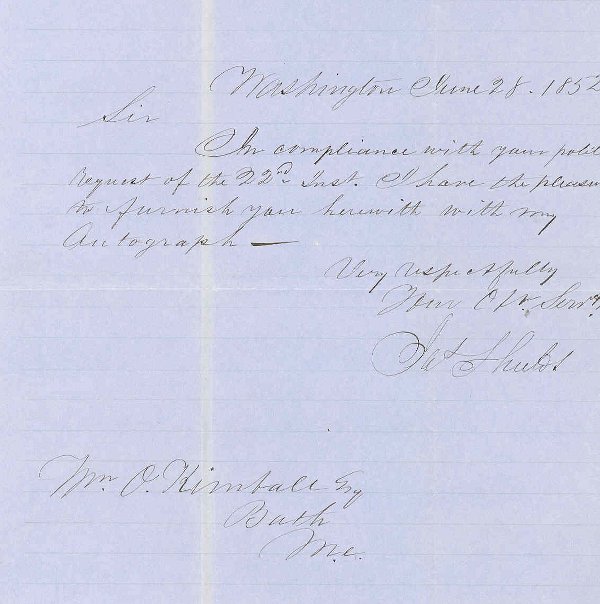 Washington June 28. 1852
Sir
In compliance with your polit
request of the 22nd Inst. I have the pleasu
to furnish you herewith with my
Autograph —
Very respectfully
Your Obt. Servt.
Jas Shields
Wm O. Kimball Esq
Bath
Me.